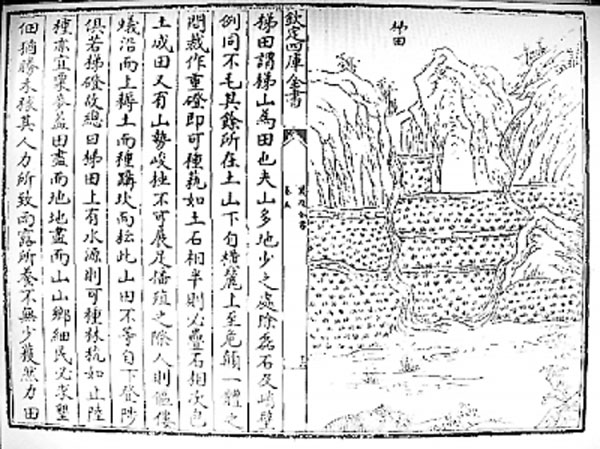 梯田
農政全書
卷五
欽定四庫全書
梯田謂梯山為田也夫山多地少之處除磊石及峭壁
例同不毛其餘所在土山下自橫麓上至危巔一體之
間裁作重磴即可種藝如土石相半則必疊石相次包
土成田又有山勢峻極不可展足播殖之際人則傴僂
蟻沿而上耨土而種躡坎而耘此山田不等自下登陟
俱若梯磴故總曰梯田上有水源則可種秫秔如止陸
種亦宜粟麥蓋田盡而地地盡而山山鄉細民必求墾
佃猶勝不稼其人力所致雨露所養不無少穫然力田